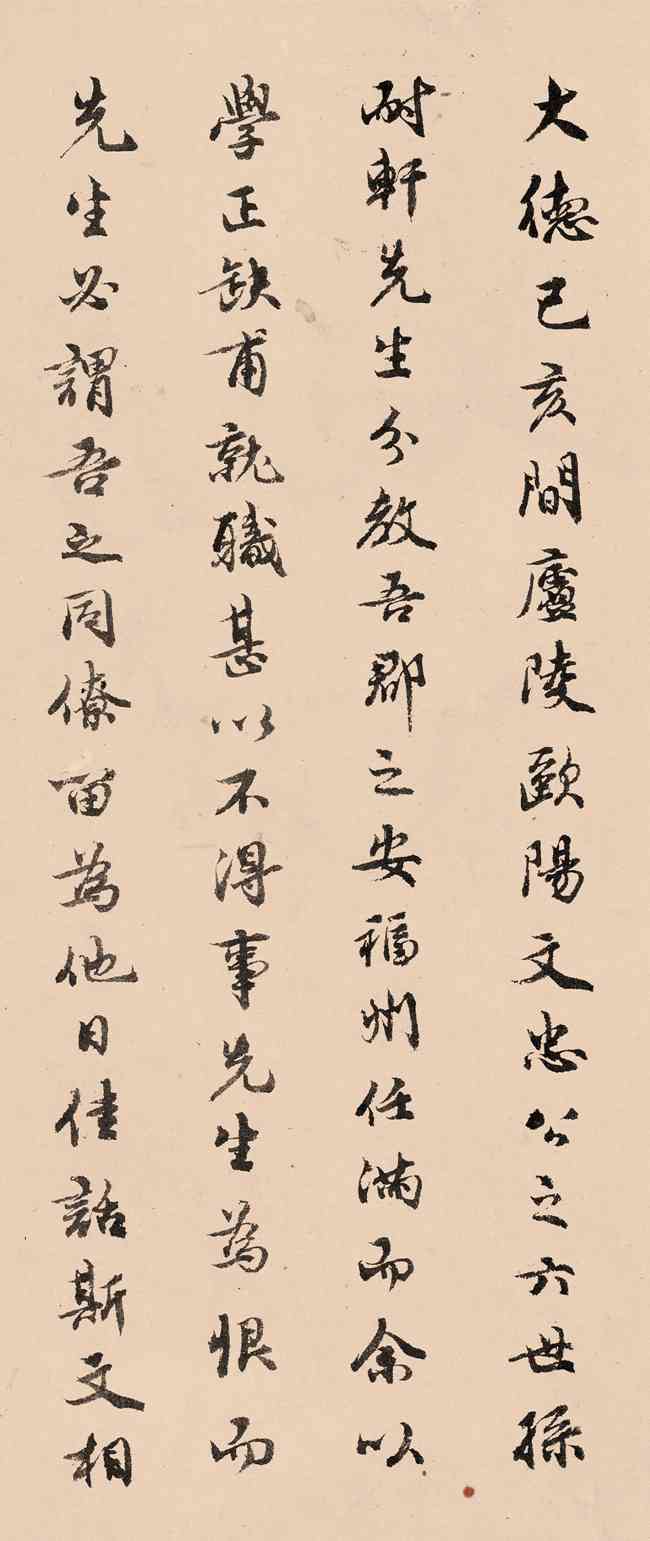 大德已亥間廬陵歐陽文忠公之六世孫
耐軒先生分教吾郡之安福州任滿而余以
學正缺甫就職甚以不得事先生為恨而
先生必謂吾之同僚留為他日佳話斯文相